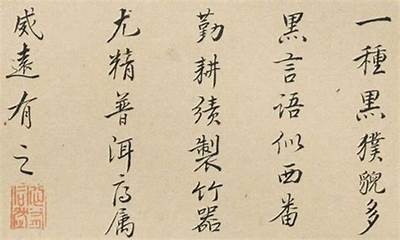 一種黑獛貌多
黑言語似西番
勤耕績製竹器
尤精普洱府属
威遠有之